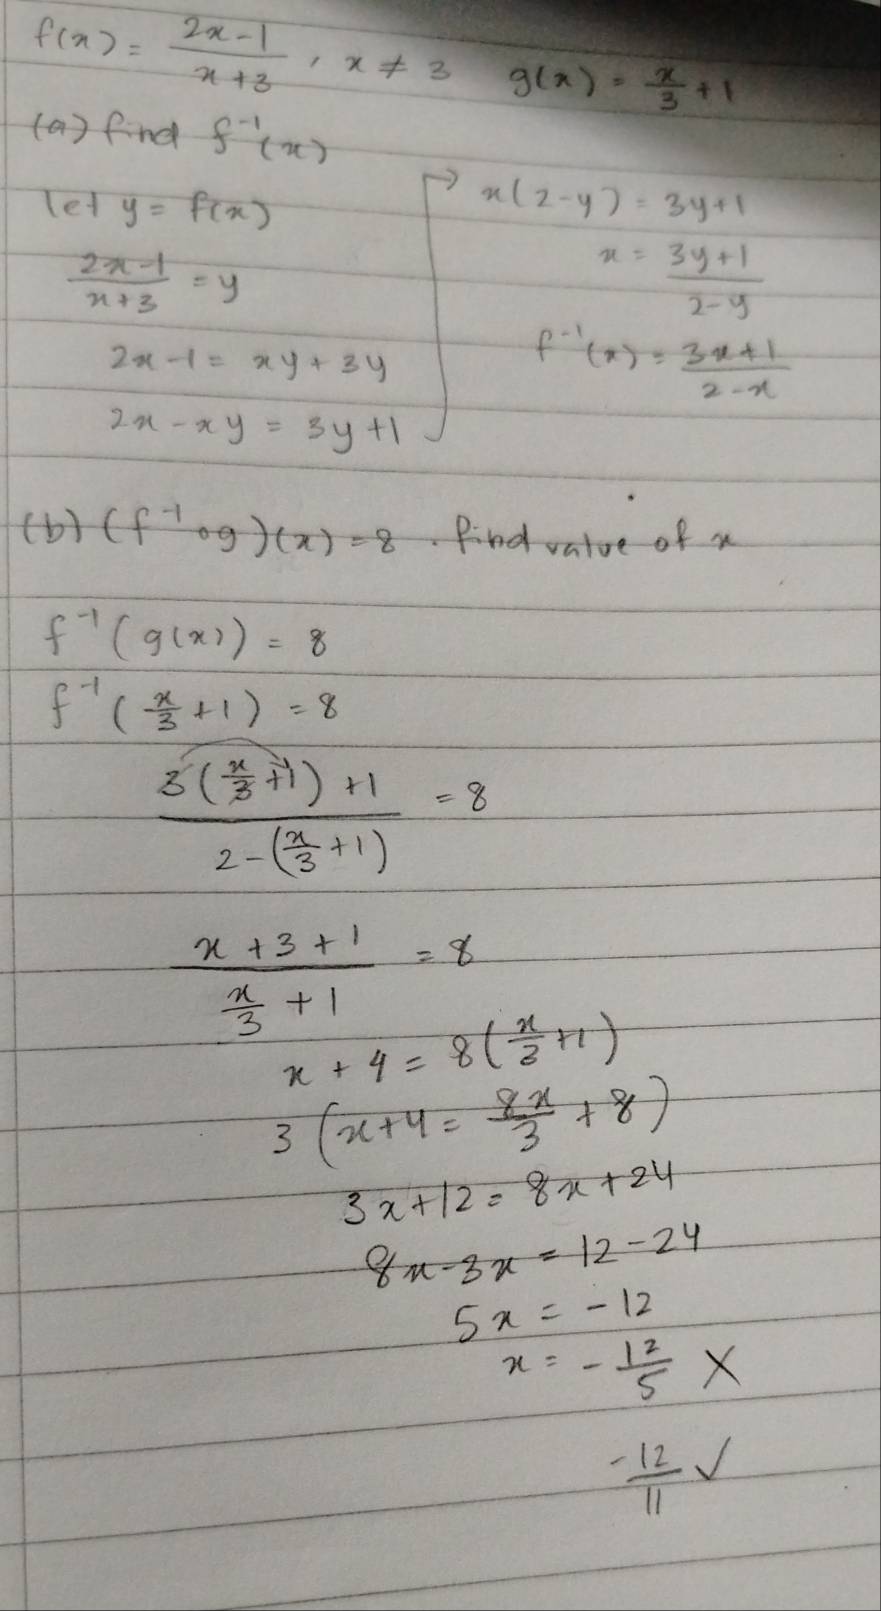 f(x) = (2x-1)/(x+3), x ≠ 3 g(x) = x/3 + 1
(a) find f⁻¹(x)
let y = f(x)
(2x-1)/(x+3) = y
2x-1 = xy + 3y
2x - xy = 3y + 1
→ x(2-y) = 3y+1
x = (3y+1)/(2-y)
f⁻¹(x) = (3x+1)/(2-x)
(b) (f⁻¹og)(x) = 8. find value of x
f⁻¹(g(x)) = 8
f⁻¹(x/3 + 1) = 8
(3(x/3 + 1) + 1)/(2-(x/3 + 1)) = 8
(x + 3 + 1)/(x/3 + 1) = 8
x + 4 = 8(x/3 + 1)
3(x+4 = 8x/3 + 8)
3x+12 = 8x+24
8x-3x = 12-24
5x = -12
x = -12/5 ✗
-12/11 ✓